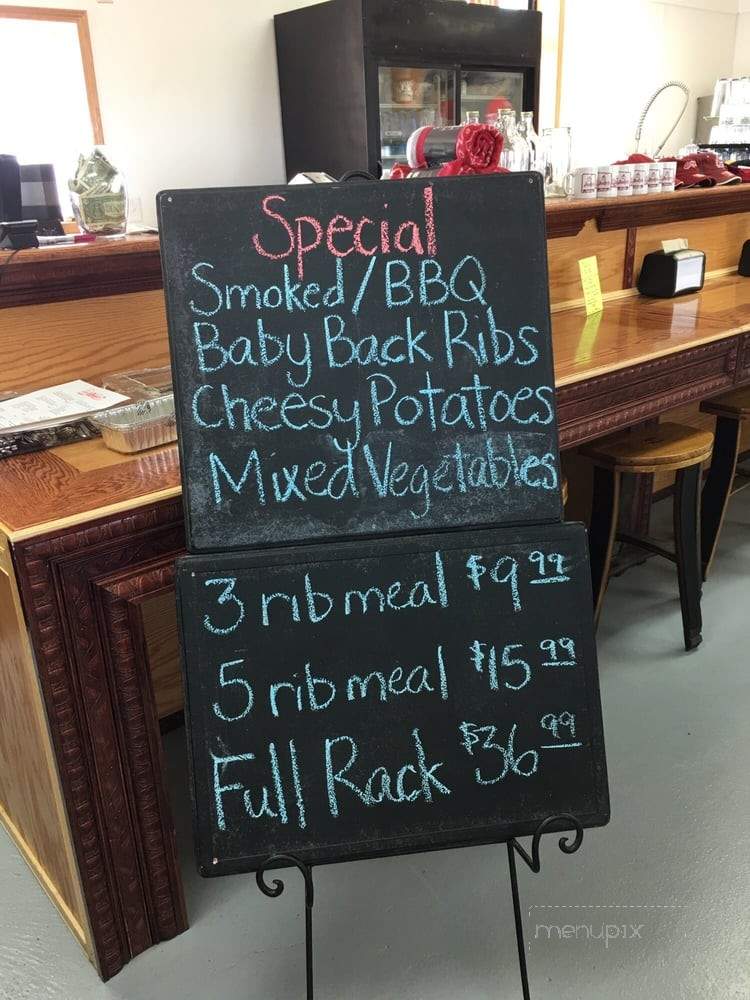 Special
Smoked/BBQ
Baby Back Ribs
Cheesy Potatoes
Mixed Vegetables
3 rib meal $9.99
5 rib meal $15.99
Full Rack $36.99
menupix